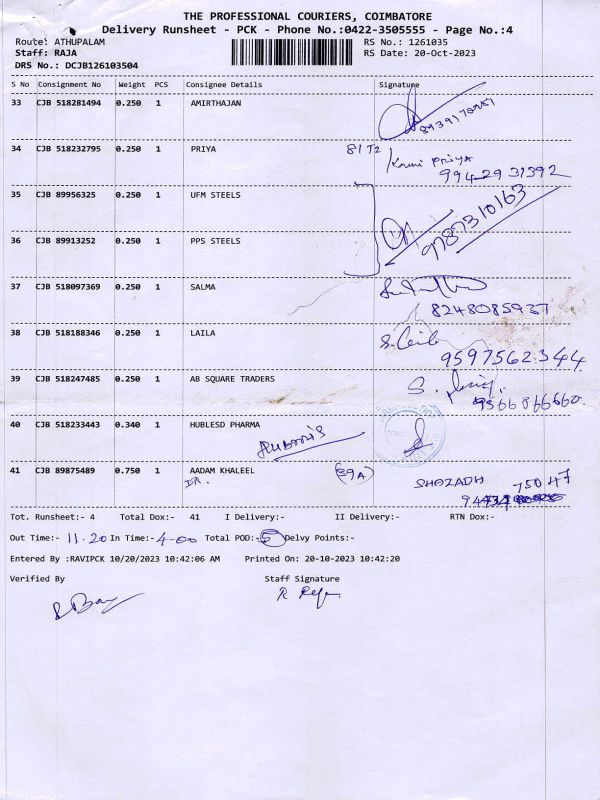 THE PROFESSIONAL COURIERS, COIMBATORE
Delivery Runsheet - PCK - Phone No.:0422-3505555 - Page No.:4
Route: ATHUPALAM RS No.: 1261035
Staff: RAJA RS Date: 20-Oct-2023
DRS No.: DCJB126103504
S No Consignment No Weight PCS Consignee Details Signature
33 CJB 518281494 0.250 1 AMIRTHAJAN
34 CJB 518232795 0.250 1 PRIYA 81 T2 Priya
994 29 31392
35 CJB 89956325 0.250 1 UFM STEELS
9787310163
36 CJB 89913252 0.250 1 PPS STEELS
37 CJB 518097369 0.250 1 SALMA
8248085937
38 CJB 518188346 0.250 1 LAILA S. Laila
9597562344
39 CJB 518247485 0.250 1 AB SQUARE TRADERS S.
9566866660
40 CJB 518233443 0.340 1 HUBLESD PHARMA
41 CJB 89875489 0.750 1 AADAM KHALEEL (39A) SHAZADH 75047
DR.
Tot. Runsheet:- 4 Total Dox:- 41 I Delivery:- II Delivery:- RTN Dox:-
Out Time:- 11.20 In Time:- 4-00 Total POD:- 5 Delvy Points:-
Entered By :RAVIPCK 10/20/2023 10:42:06 AM Printed On: 20-10-2023 10:42:20
Verified By Staff Signature